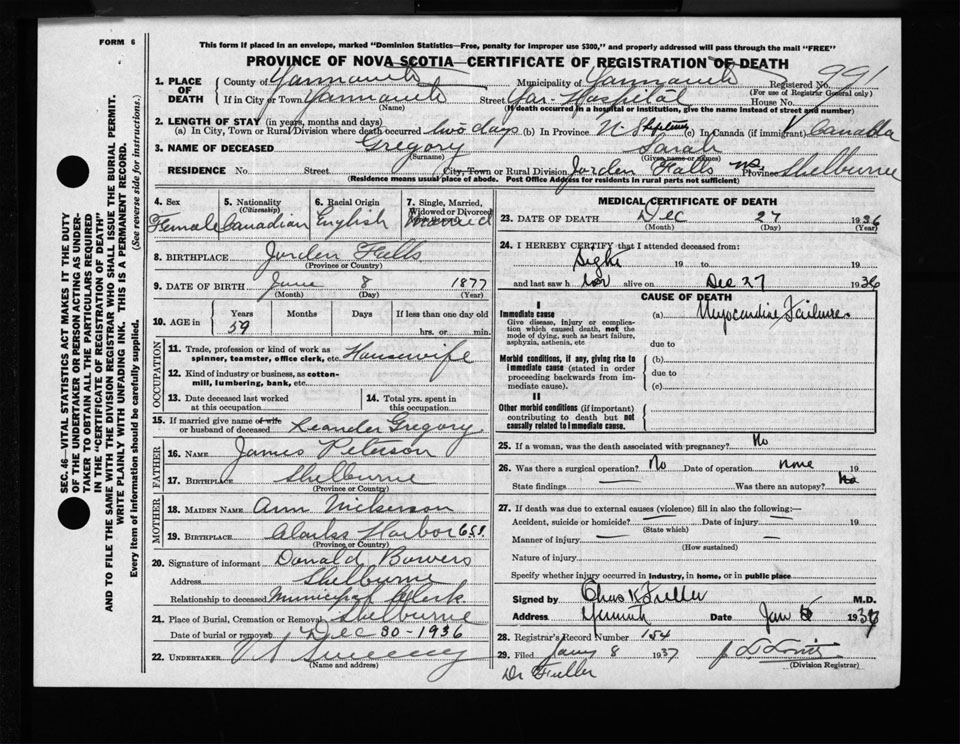 FORM 6
This form if placed in an envelope, marked "Dominion Statistics—Free, penalty for improper use $300," and properly addressed will pass through the mail "FREE"
PROVINCE OF NOVA SCOTIA—CERTIFICATE OF REGISTRATION OF DEATH
1. PLACE OF DEATH County of Yarmouth Municipality of Yarmouth Registered No. 991
(For use of Registrar General only)
If in City or Town Yarmouth Street Yar. Hospital House No.
(Name) (If death occurred in a hospital or institution, give the name instead of street and number)
2. LENGTH OF STAY (in years, months and days)
(a) In City, Town or Rural Division where death occurred two days (b) In Province N.S. (c) In Canada (if immigrant) Canada
3. NAME OF DECEASED Gregory Sarah
(Surname) (Given name or names)
RESIDENCE No. Street City, Town or Rural Division Jorden Falls Province Shelburne
(Residence means usual place of abode. Post Office Address for residents in rural parts not sufficient)
4. Sex Female
5. Nationality (Citizenship) Canadian
6. Racial Origin English
7. Single, Married, Widowed or Divorced Married
8. BIRTHPLACE Jorden Falls
(Province or Country)
9. DATE OF BIRTH June 8 1877
(Month) (Day) (Year)
10. AGE in Years Months Days If less than one day old
59 hrs. or min.
OCCUPATION
11. Trade, profession or kind of work as spinner, teamster, office clerk, etc. Housewife
12. Kind of industry or business, as cotton-mill, lumbering, bank, etc.
13. Date deceased last worked at this occupation
14. Total yrs. spent in this occupation
15. If married give name of wife or husband of deceased Leander Gregory
FATHER
16. NAME James Peterson
17. BIRTHPLACE Shelburne
(Province or Country)
MOTHER
18. MAIDEN NAME Ann Nickerson
19. BIRTHPLACE Clarks Harbor
(Province or Country)
20. Signature of informant Donald Bowers
Address Shelburne
Relationship to deceased Municipal Clerk
21. Place of Burial, Cremation or Removal Shelburne
Date of burial or removal Dec 30-1936
22. UNDERTAKER Sweeny
(Name and address)
MEDICAL CERTIFICATE OF DEATH
23. DATE OF DEATH Dec 27 1936
(Month) (Day) (Year)
24. I HEREBY CERTIFY that I attended deceased from:
19 to 19
and last saw her alive on Dec 27 1936
CAUSE OF DEATH
I
Immediate cause
Give disease, injury or complication which caused death, not the mode of dying, such as heart failure, asphyxia, asthenia, etc
(a) Myocardial Failure
due to
Morbid conditions, if any, giving rise to immediate cause (stated in order proceeding backwards from immediate cause).
(b)
due to
(c)
II
Other morbid conditions (if important) contributing to death but not causally related to immediate cause.
25. If a woman, was the death associated with pregnancy? No
26. Was there a surgical operation? No Date of operation none 19
State findings Was there an autopsy? No
27. If death was due to external causes (violence) fill in also the following:—
Accident, suicide or homicide? Date of injury 19
(State which)
Manner of injury
(How sustained)
Nature of injury
Specify whether injury occurred in industry, in home, or in public place
Signed by Chas K Fuller M.D.
Address Yarmouth Date Jan 5 1937
28. Registrar's Record Number 154
29. Filed Jany 8 1937
(Division Registrar)
Dr Fuller
SEC. 46—VITAL STATISTICS ACT MAKES IT THE DUTY
OF THE UNDERTAKER OR PERSON ACTING AS UNDER-
TAKER TO OBTAIN ALL THE PARTICULARS REQUIRED
IN THE "CERTIFICATE OF REGISTRATION OF DEATH"
AND TO FILE THE SAME WITH THE DIVISION REGISTRAR WHO SHALL ISSUE THE BURIAL PERMIT.
WRITE PLAINLY WITH UNFADING INK. THIS IS A PERMANENT RECORD.
Every item of information should be carefully supplied. (See reverse side for instructions.)